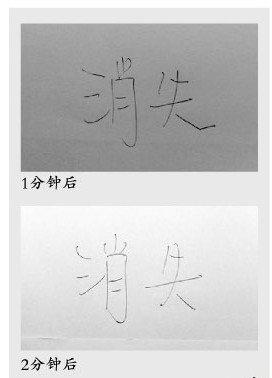 消失
1分钟后
消失
2分钟后